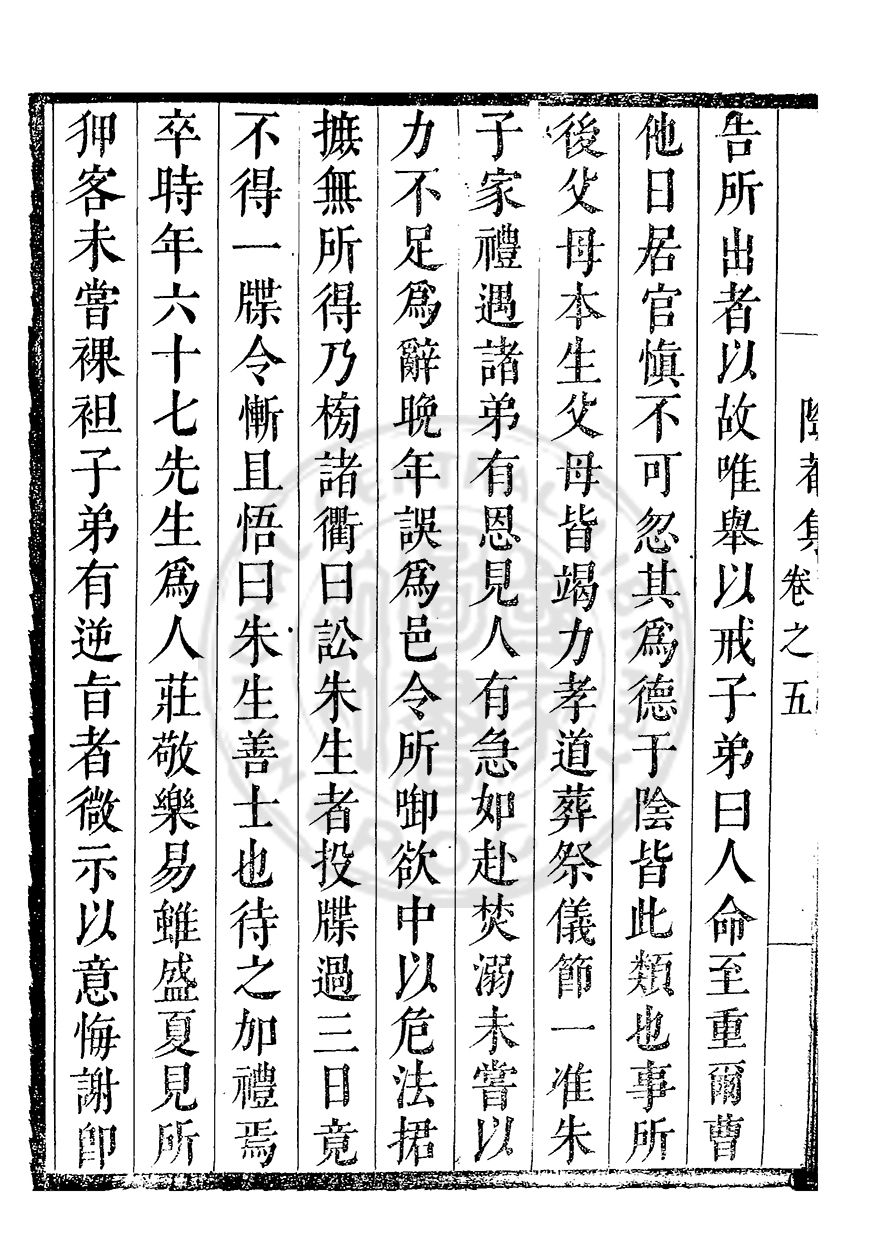 卷之五
告所出者以故唯舉以戒子弟曰人命至重爾曹
他日居官慎不可忽其爲德于陰皆此類也事所
後父母本生父母皆竭力孝道葬祭儀節一准朱
子家禮遇諸弟有恩見人有急如赴焚溺未嘗以
力不足爲辭晚年誤爲邑令所啣欲中以危法捃
摭無所得乃榜諸衢曰訟朱生者投牒過三日竟
不得一牒令慚且悟曰朱生善士也待之加禮焉
卒時年六十七先生爲人莊敬樂易雖盛夏見所
狎客未嘗裸袒子弟有逆旨者微示以意悔謝卽